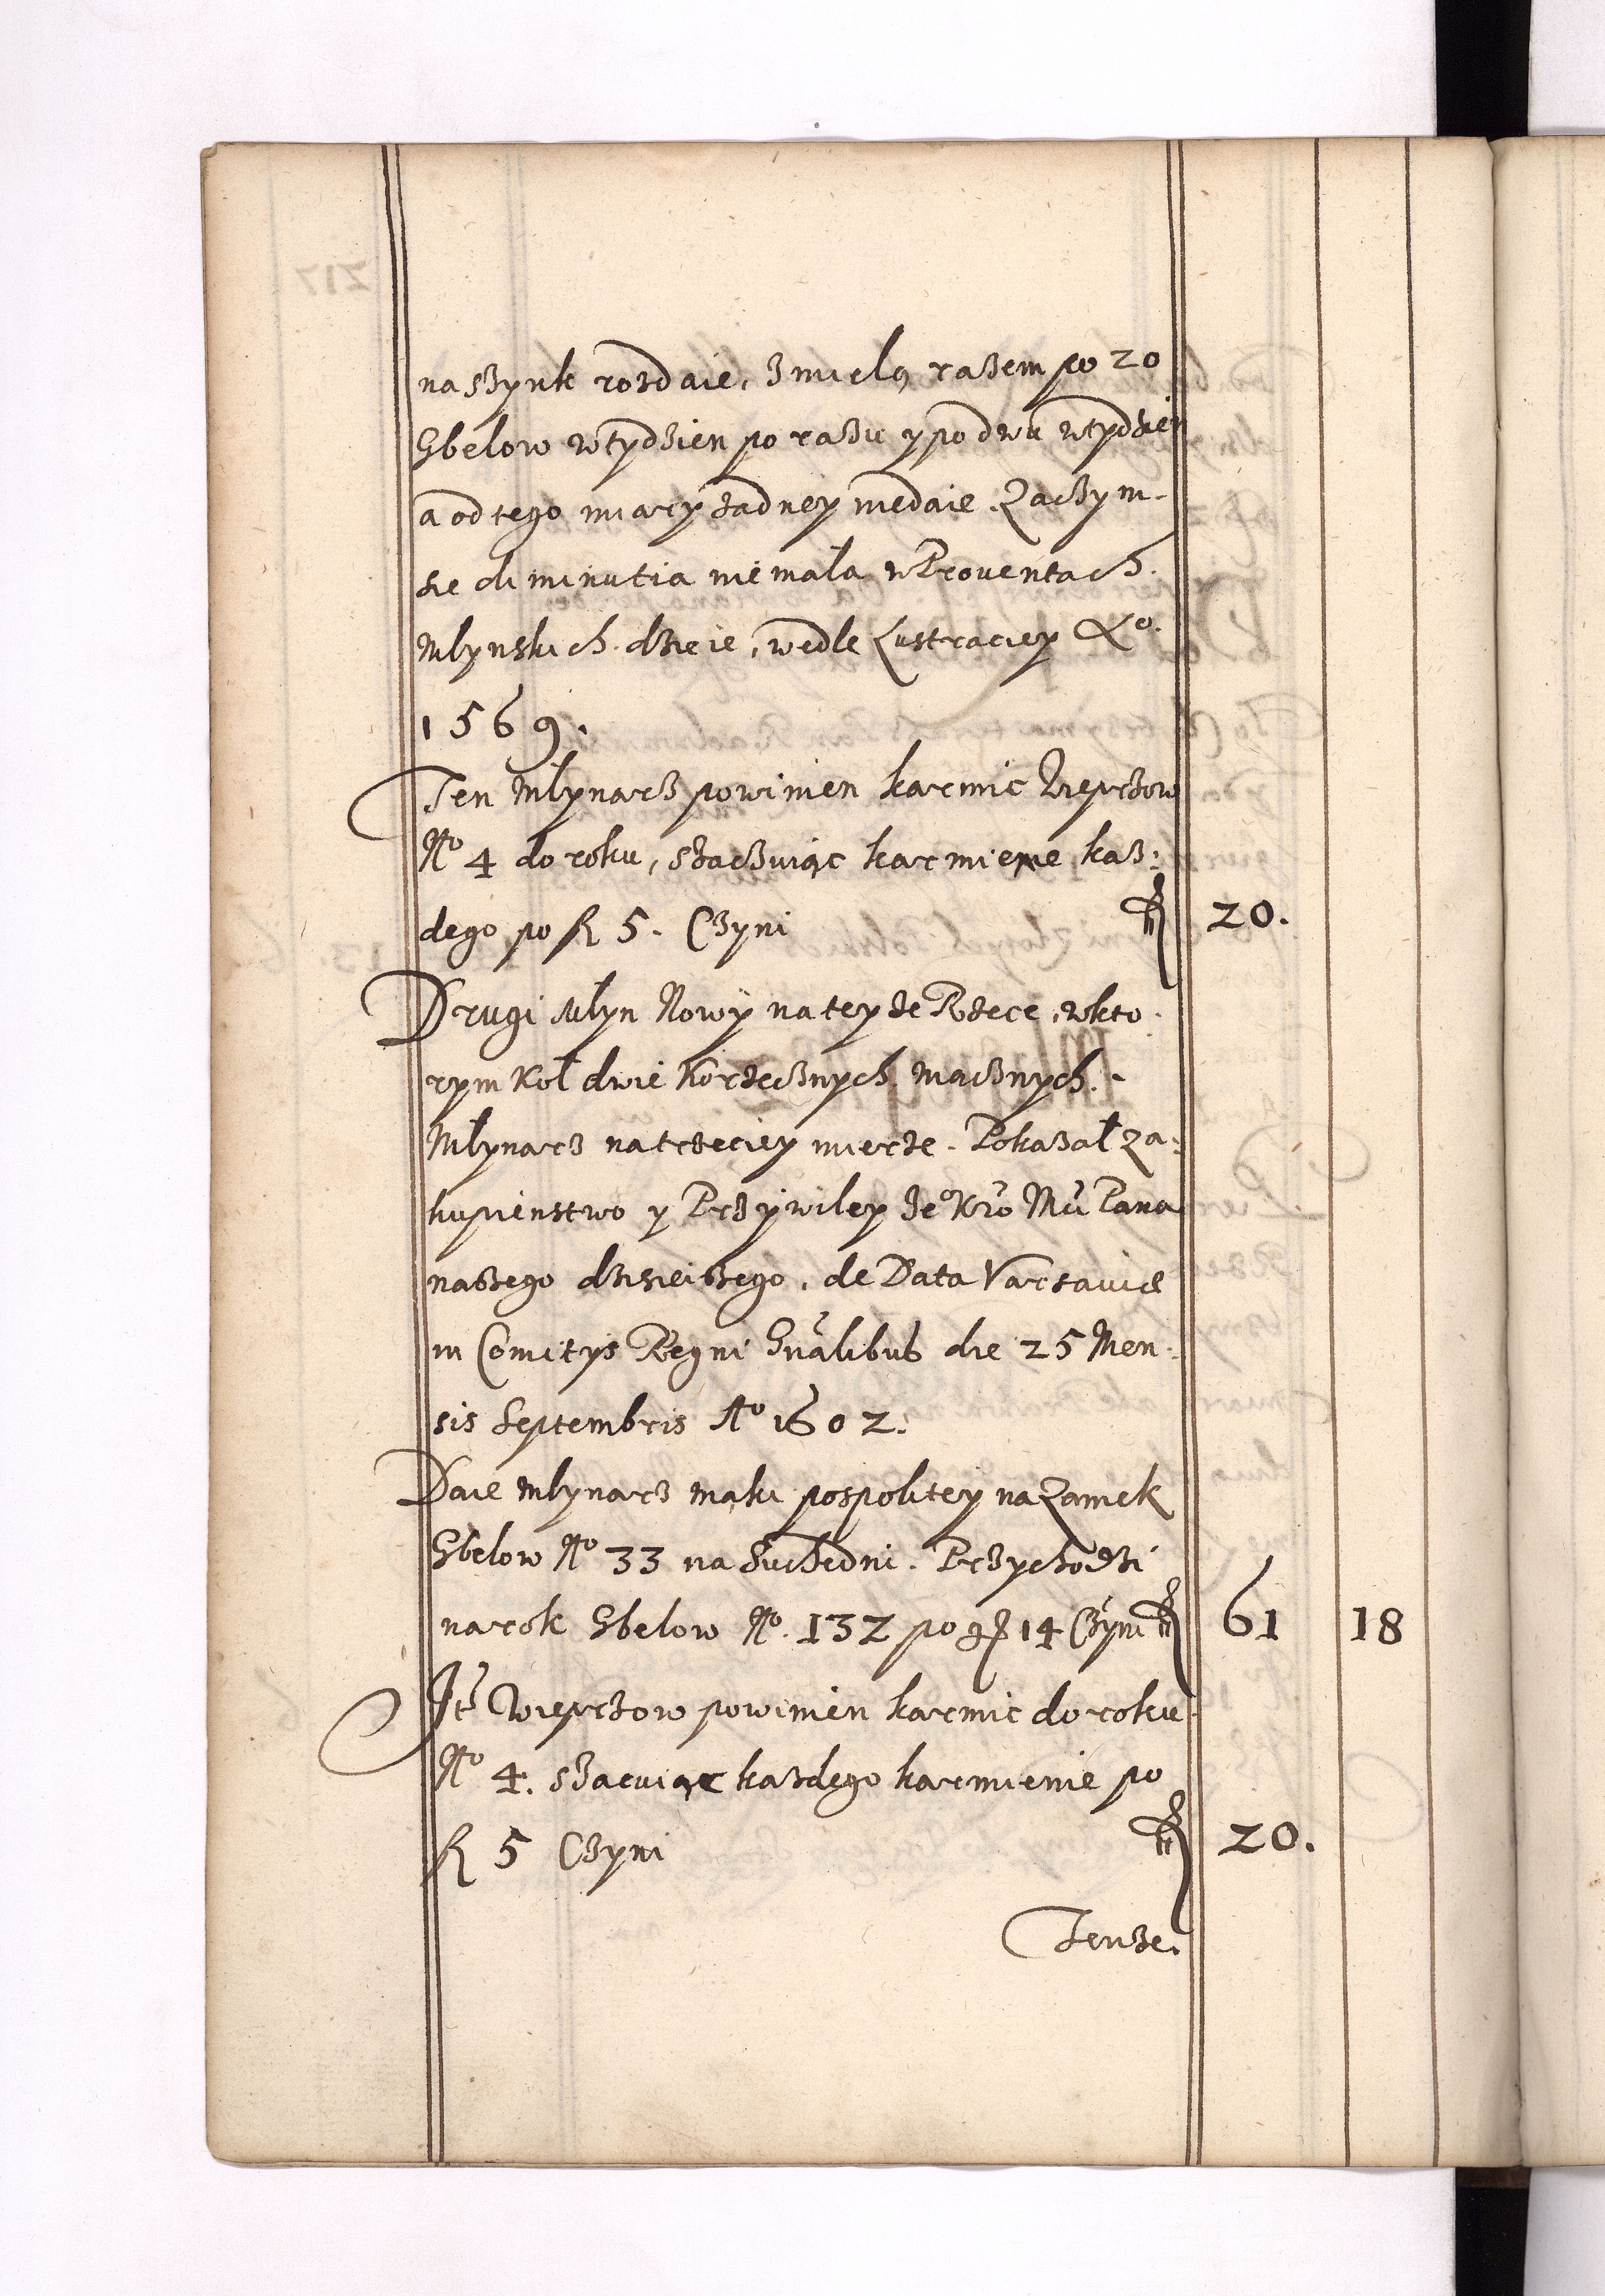 na szynk rozdaie, zmielą razem po 20
Gbelow w tydzien po razu y po dwu w tydzień
a od tego miary żadney niedaie. Zaczym-
sie diminutia niemała w Proventach
Młynskich dzieie, wedle Lustraciey Aº.
1569.
Ten Młynarz powinien karmic Wieprzow
Nº 4 do roku, szaczuiąc karmienie kaz:
dego po fl 5. Czyni fl 20.
Drugi Młyn Nowy na teyże Rzece, w kto-
rym Koł dwie Korzecznych Macznych.
Młynarz na trzeciey mierze. Pokazał Za-
kupienstwo y Przywiley Jeº Kró Mći Pana
naszego dzisieiszego, de Data Varsaviæ
in Comitys Regni Gnalibus die 25 Men:
sis Septembris Aº 1602.
Daie Młynarz mąki pospolitey na Zamek
Gbelow Nº 33 na Suchedni. Przychodzi
na rok Gbelow Nº. 132 po gr 14 Czyni fl 61 18
Itē Wieprzow powinien karmic do roku
Nº 4. szacuiąc kazdego karmienie po
fl 5 Czyni fl 20.
Tenze.